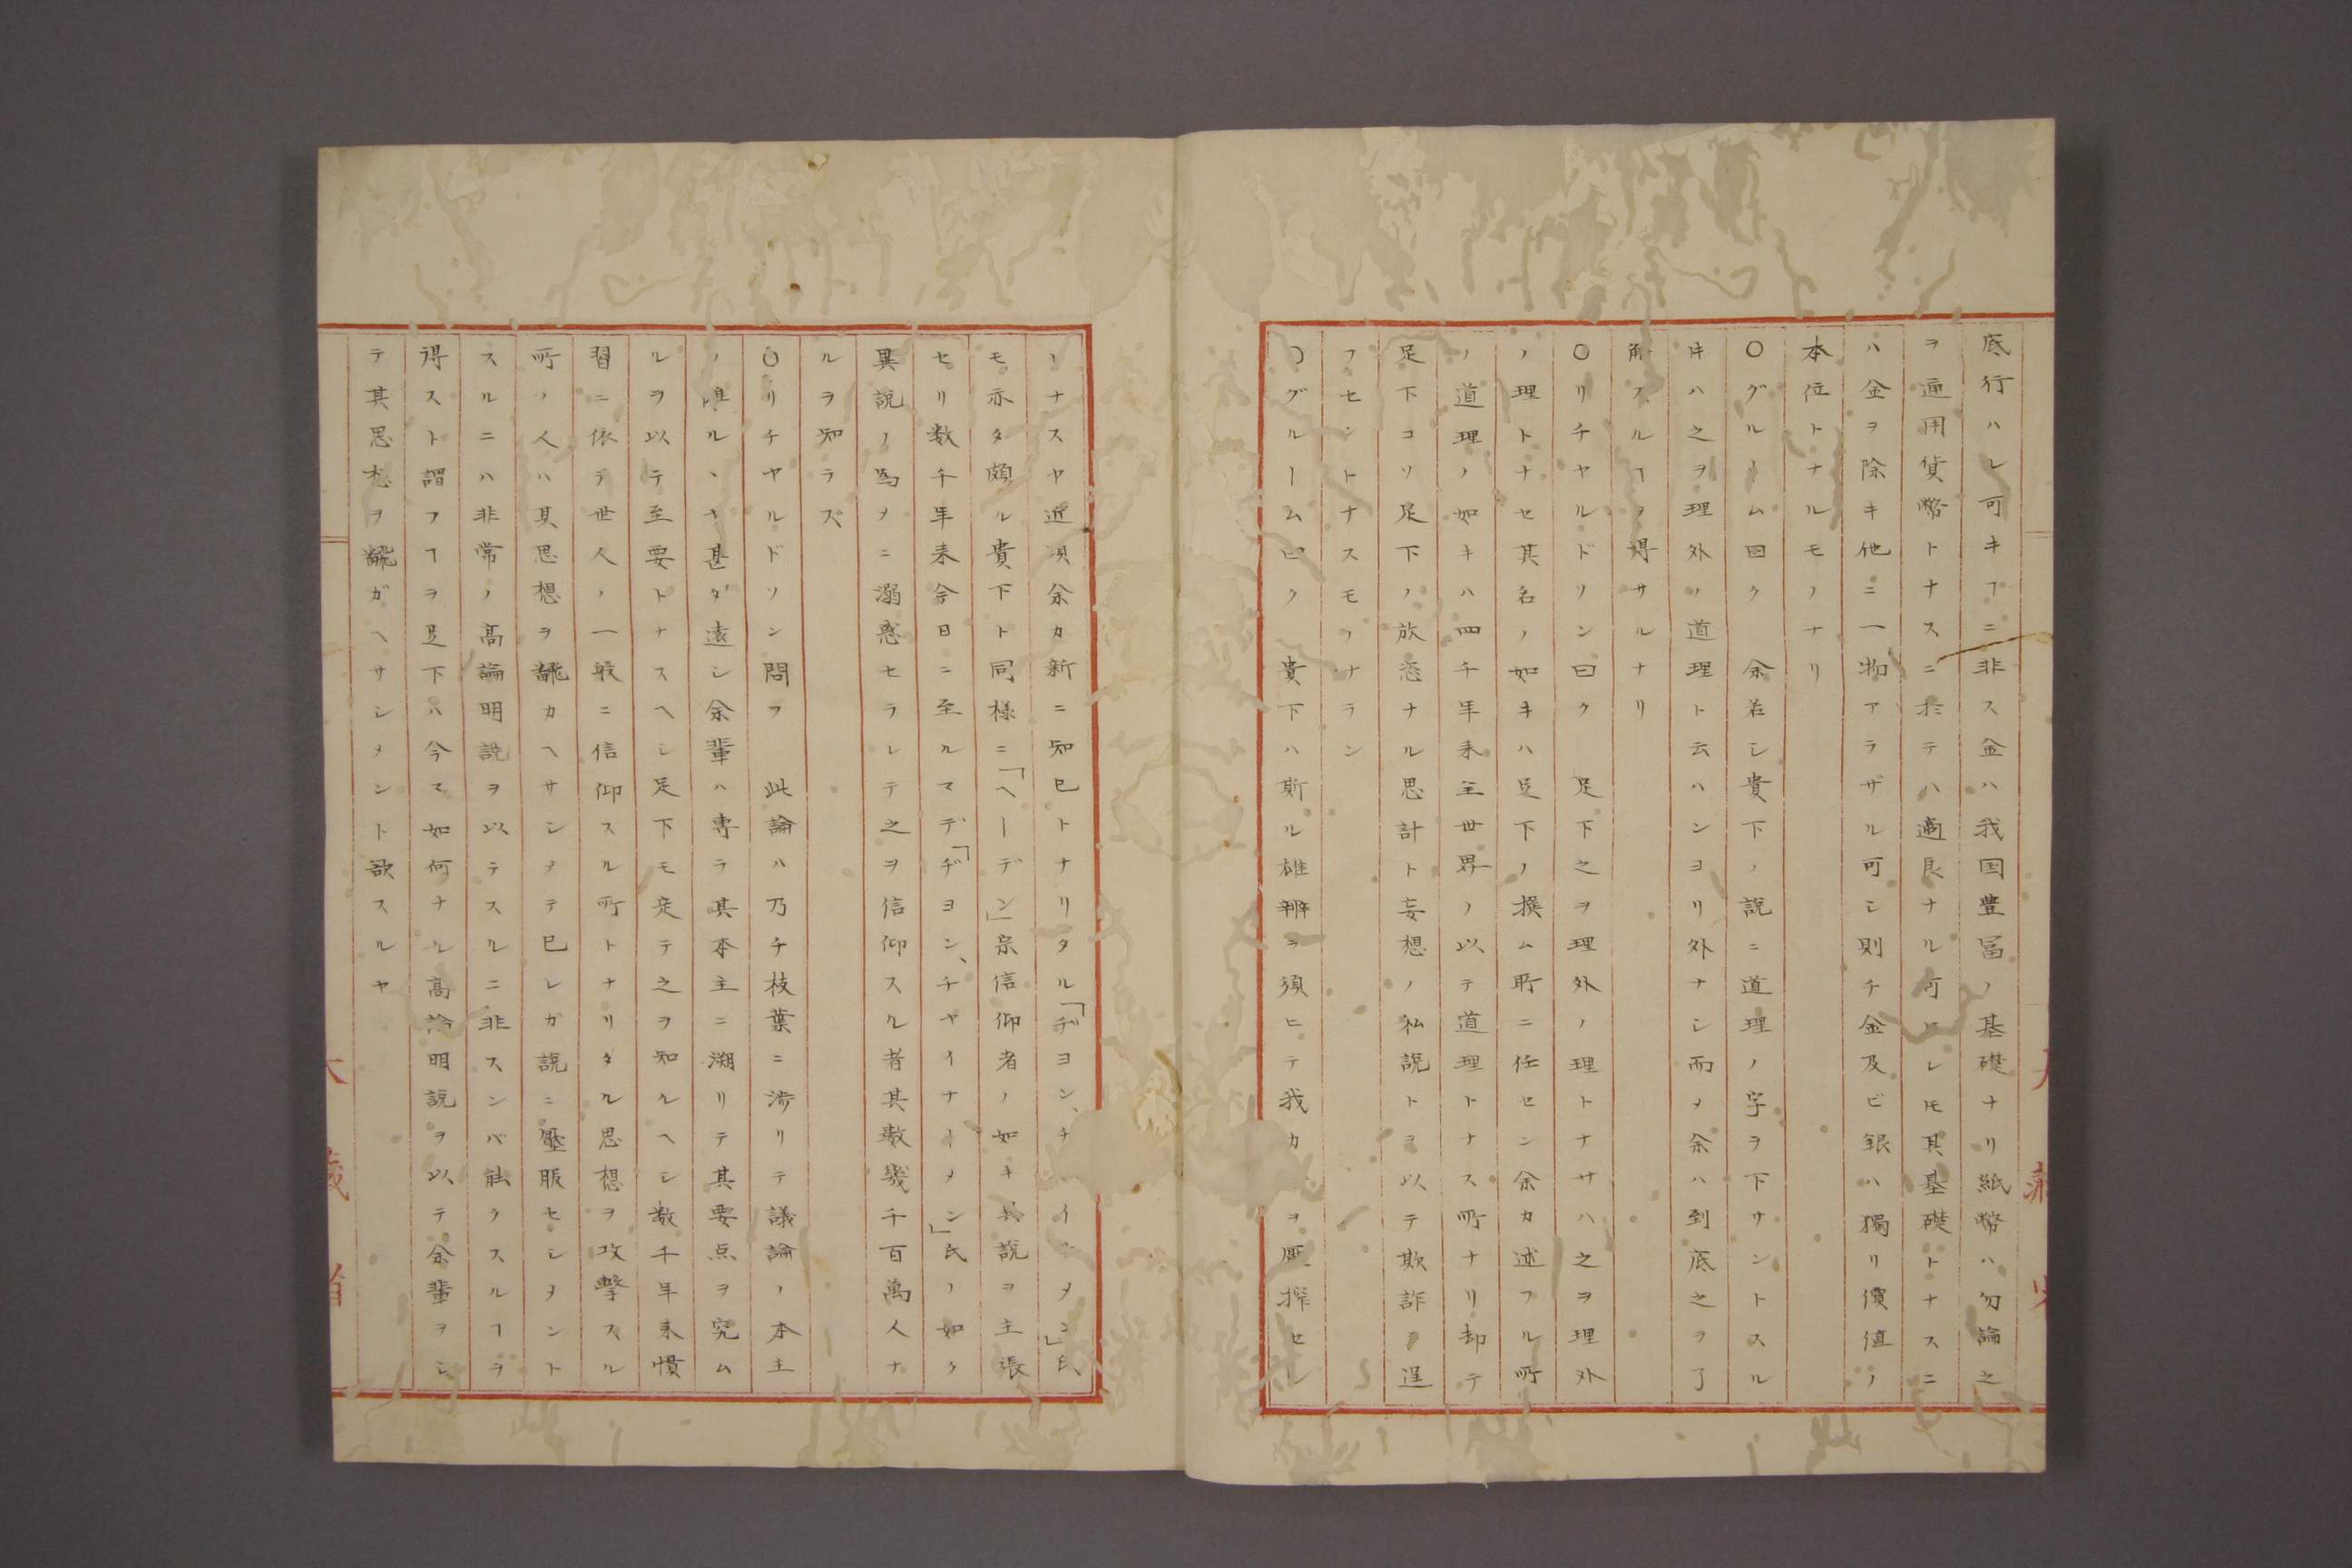 底行ハレ可キヿニ非ス金ハ我国豊冨ノ基礎ナリ紙幣ハ勿論之
ヲ通用貨幣トナスニ於テハ適良ナル可ケレ𪜈其基礎トナスニ
ハ金ヲ除キ他ニ一物アラザル可シ則チ金及ビ銀ハ獨リ價値ノ
本位トナルモノナリ
〇グルーム曰ク　余若シ貴下ノ説ニ道理ノ字ヲ下サントスル
𪜈ハ之ヲ理外ノ道理ト云ハンヨリ外ナシ而メ余ハ到底之ヲ了
解スルヿヲ得サルナリ
〇リチヤルドソン曰ク　足下之ヲ理外ノ理トナサハ之ヲ理外
ノ理トナセ其名ノ如キハ足下ノ撰ム所ニ任セン余カ述フル所
ノ道理ノ如キハ四千年来全世界ノ以テ道理トナス所ナリ却テ
足下コソ足下ノ放恣ナル思計ト妄想ノ私説トヲ以テ欺詐ヲ逞
フセントナスモノナラン
〇グルーム曰ク　貴下ハ斯ル雄辨ヲ須ヒテ我カ ヲ壓搾セン
トナスヤ近頃余カ新ニ知己トナリタル「ヂヨン、チ イ メン」氏
モ亦タ頗ル貴下ト同様ニ「ヘーデン」宗信仰者ノ如キ異説ヲ主張
セリ数千年来今日ニ至ルマデ「ヂヨン、チヤイナーメン」氏ノ如ク
異説ノ為メニ溺惑セラレテ之ヲ信仰スル者其数幾千百萬人ナ
ルヲ知ラズ
〇リチヤルドソン問フ　此論ハ乃チ枝葉ニ渉リテ議論ノ本主
ノ離ルヽヿ甚ダ遠シ余輩ハ専ラ其本主ニ溯リテ其要点ヲ究ム
ルヲ以テ至要トナスヘシ足下モ定テ之ヲ知ルヘシ数千年来慣
習ニ依テ世人ノ一般ニ信仰スル所トナリタル思想ヲ攻撃スル
所ノ人ハ其思想ヲ飜カヘサシメテ己レガ説ニ壓服セシメント
スルニハ非常ノ高論明説ヲ以テスルニ非スンバ能クスルヿヲ
得スト謂フヿヲ足下ハ今マ如何ナル高論明説ヲ以テ余輩ヲシ
テ其思想ヲ飜ガヘサシメント欲スルヤ
大藏省